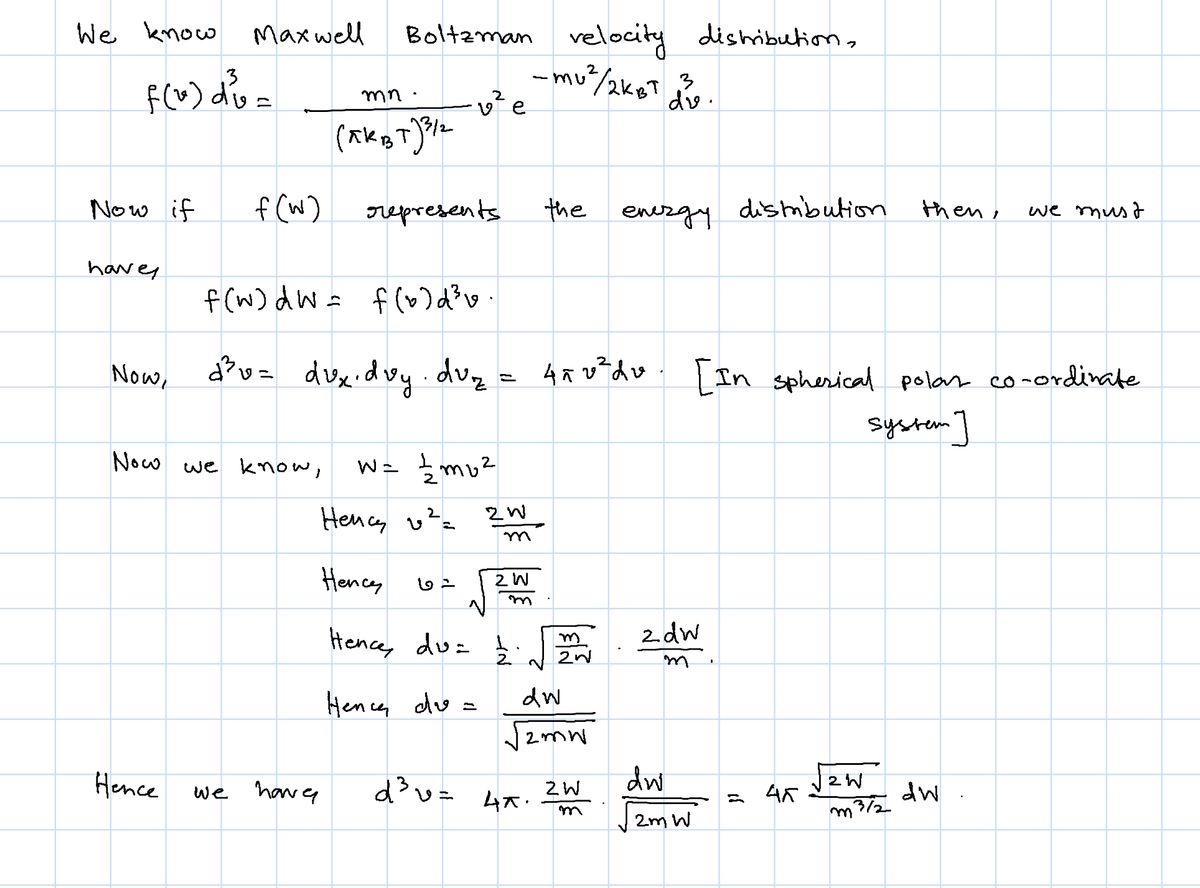 We know Maxwell Boltzman velocity distribution,
f(v) d³v = mn. / (πk_BT)^{3/2} v² e^{-mv²/2k_BT} d³v.
Now if f(W) represents the energy distribution then, we must
have,
f(W) dW = f(v) d³v.
Now, d³v = dv_x. dv_y. dv_z = 4πv²dv. [In spherical polar co-ordinate
system]
Now we know, W = 1/2 mv²
Hence, v² = 2W/m
Hence, v = √(2W/m).
Hence, dv = 1/2 . √(m/2W) . 2dW/m.
Hence, dv = dW/√(2mW)
Hence we have, d³v = 4π. 2W/m . dW/√(2mW) = 4π √(2W)/m^{3/2} dW.